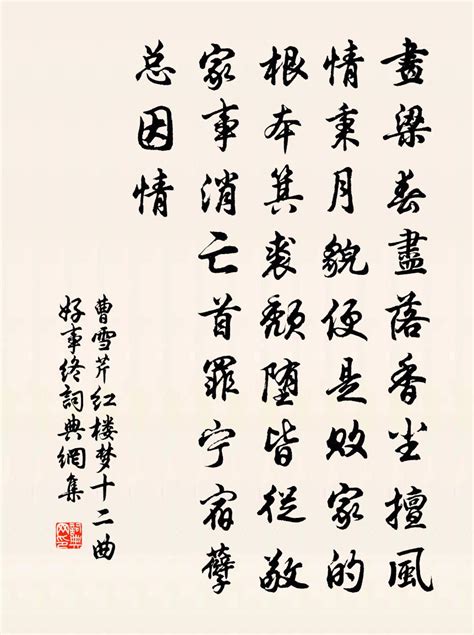 畫梁春盡落香尘擅風
情秉月貌便是败家的
根本箕裘颓堕皆從敬
家事消亡首罪宁宿孽
总因情
曹雪芹红楼梦十二曲
好事终詞典網集